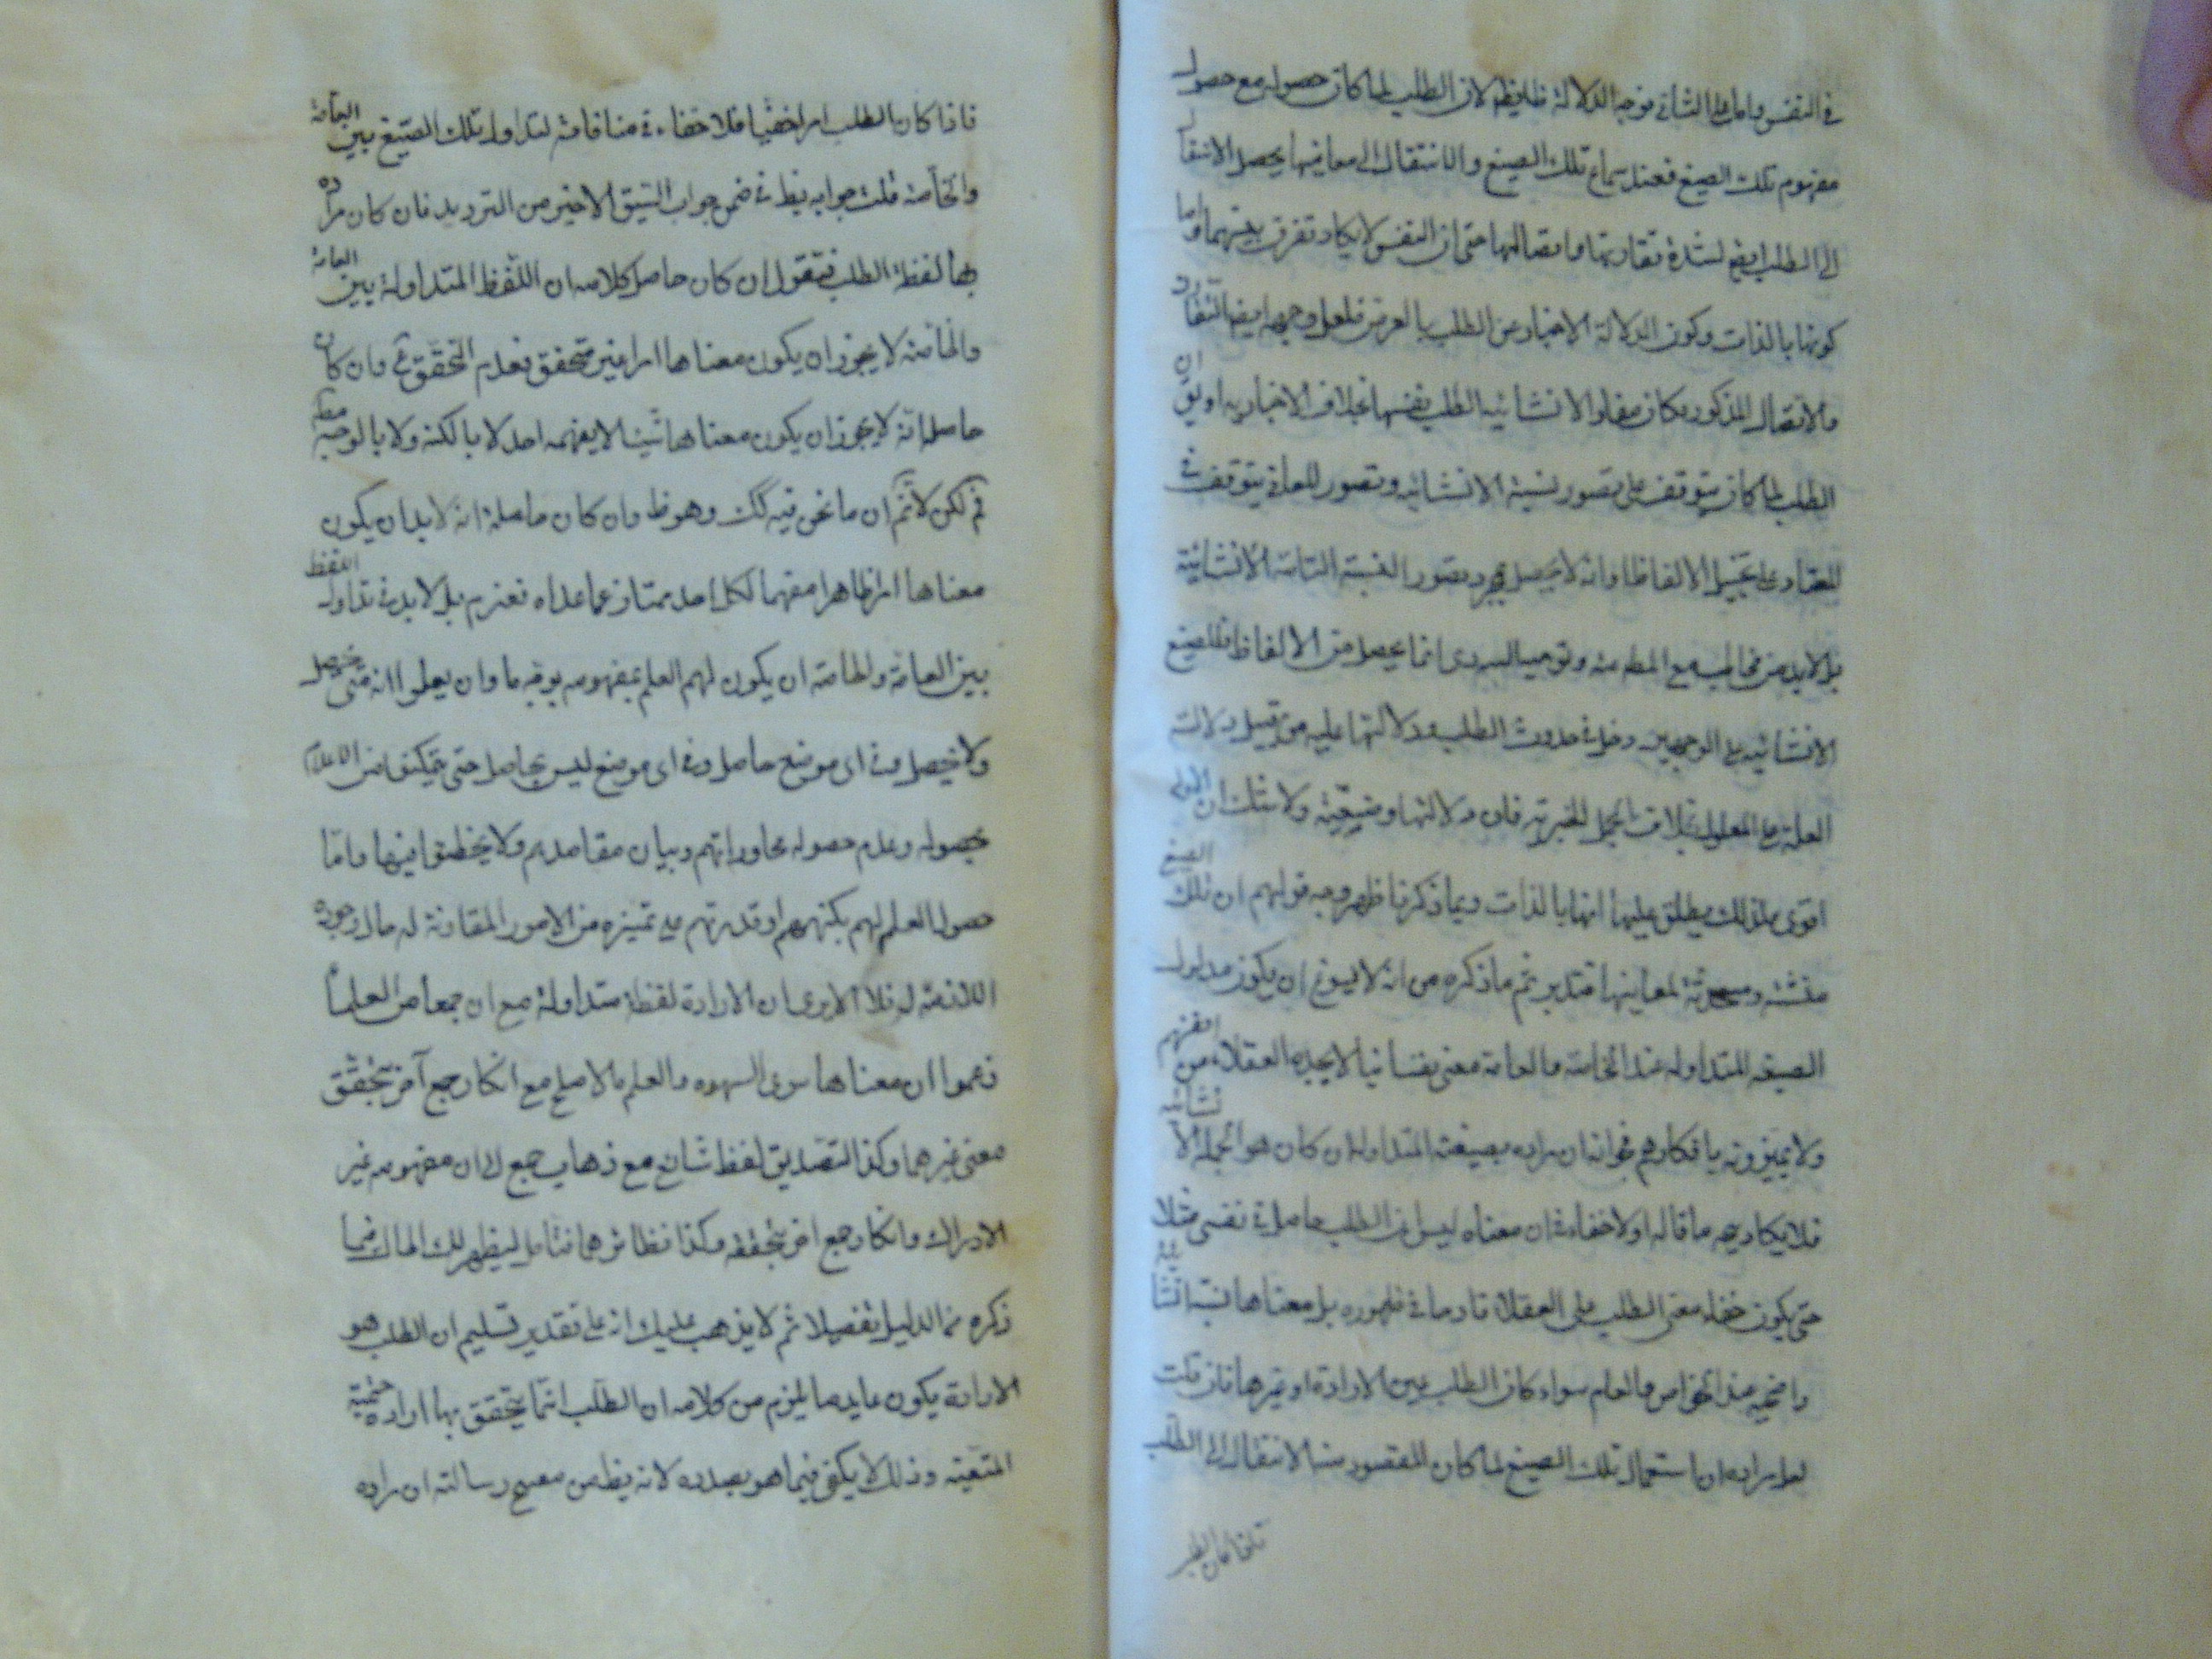 في النفس واما على الثاني فوجه الدلالة فلان الطلب لما كان حصوله مع حصول
مفهوم تلك الصيغ فعند سماع تلك الصيغ والانتقال الى معانيها يحصل الانتقال
الى الطلب ايضا لشدة تقاربها واتصالها حتى ان النفس لا يكاد تفرق بينهما واما
كونها بالذات وكون الدلالة الاخبار عن الطلب بالعرض فلعل وجهه ايضا التقارن
والاتصال المذكور فكان مفاد الانشائيه الطلب بنفسها بخلاف الاخباريه او يق ان
الطلب لما كان يتوقف على تصور نسبة الانشائيه وتصور للعلة يتوقف في
المعتاد على تخيل الالفاظ وانه لا يحصل بمجرد تصور النسبة التامة الانشائية
بل لا بد من مخاطبه مع المطه منه وتوجيه انما يحصل من الالفاظ فللصيغ
الانشائيه على الوجهين دخل في حدوث الطلب ودلالتها عليه من قبيل دلالت
العلة على المعلول بخلاف الجمل الخبرية فان دلالتها وضعية ولا شك ان الاولى
اقوى فلذلك يطلق عليها انها بالذات وبما ذكرنا ظهر وجه قولهم ان تلك الصيغ
منشئه ومحدثة لمعانيها فتدبر ثم ما ذكره من انه لا يسوغ ان يكون مدلول
الصيغه المتداوله عند الخاصة والعامة معنى نفسانيا لا يجده العقلاء من انفسهم
ولا يميزونه بافكارهم فجوابه ان مراده بصيغة المتداوله ان كان هو الجمله الانشائيه
فلا يكاد يصح ما قاله اولا خفاء في ان معناه ليس ان الطلب حاصل في نفسي مثلا
حتى يكون خفاء معنى الطلب على العقلاء قادحا في ظهوره بل معناها نسبة انشائية
واضحه عند الخواص والعام سواء كان الطلب عين الارادة او غيرها فان قلت
لعل مراده ان استعمال تلك الصيغ لما كان المقصود منها الانتقال الى الطلب
فاذا كان الطلب امرا خفيا فلا خفاء في منافاته لتداول تلك الصيغ بين العامة
والخاصة قلت جوابه يظ في ضمن جواب الشق الاخير من الترديد فان كان مراده
بها لفظة الطلب فنقول ان كان حاصل كلامه ان اللفظ المتداولة بين العامة
والخاصة لا يجوز ان يكون معناها امرا غير متحقق فعدم التحقق مم وان كان
حاصله انه لا يجوز ان يكون معناها شيئا لا يفهمه احد لا بالكنه ولا بالوجه
فم لكن لا نم ان ما نحن فيه كك وهو ظ وان كان حاصله انه لا بد ان يكون
معناها امرا ظاهرا مفهما لكل احد ممتاز عما عداه فغير م بل لا بد في تداول اللفظ
بين العامة والخاصة ان يكون لهم العلم بمفهومه بوجه ما وان يعلموا انه متى يحصل
ولا يحصل وفي اى موضع حاصل وفي اى موضع ليس بحاصل حتى يمكنهم من الاعلام
بحصوله وعدم حصوله محاوراتهم وبيان مقاصدهم ولا يخطئوا فيها واما
حصول العلم لهم بكنهه او قدرتهم على تميزه من الامور المقارنة له حال وجوده
اللازمة له فلا الا يرى ان الارادة لفظة متداولة مع ان جمعا من العلماء
زعموا ان معناها سوى الشهوه والعلم بالاصلح مع انكار جمع آخر بتحقق
معنى غيرهما وكذا التصديق لفظ شائع مع ذهاب جمع الى ان مفهومه غير
الادراك وانكار جمع اخر بتحققه وكذا نظائرهما فتامل ليظهر لك الحال فيما
ذكره من الدليل تفصيلا ثم لا يذهب عليك انه على تقدير تسليم ان الطلب هو
الارادة يكون غايه ما يلزم من كلامه ان الطلب انما يتحقق بها اراده حتمية
المتعينه وذلك لا يكفى فيما هو بصدده لانه يظ من رسالته ان مراده